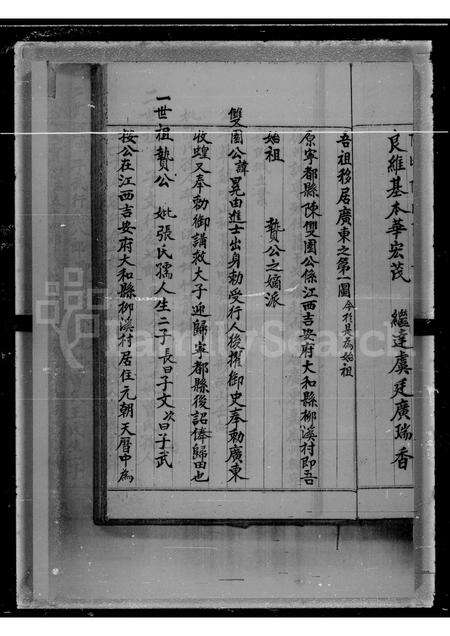 良維基本華宏茂 繼達虞廷廣瑞香
吾祖移居廣東之第一圖今於是為始祖
原寧都縣陳雙園公係江西吉安府大和縣柳溪村即吾
始祖 贄公之嫡派
雙園公諱冕由進士出身勅受行人後擢御史奉勅廣東
收蝗又奉勅御講救大子迎歸寧都縣後詔俸歸田也
一世祖贄公 妣張氏孺人生二子長曰子文次曰子武
按公在江西吉安府大和縣柳溪村居住元朝天曆中為
FamilySearch